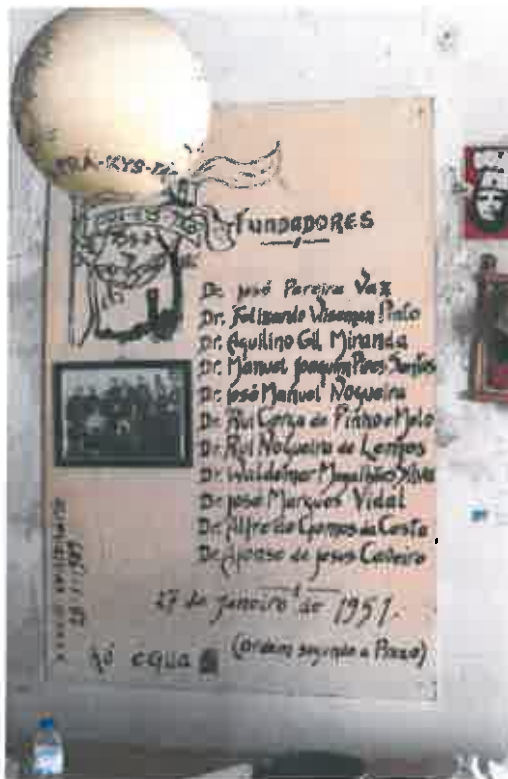 PRÁ-KYS-TÃO
FUNDADORES
Dr. José Pereira Vaz
Dr. Felizardo Pinto
Dr. Aquilino Gil Miranda
Dr. Manuel Joaquim Pires Santos
Dr. José Manuel Nogueira
Dr. Rui Corga de Pinho e Melo
Dr. Rui Nogueira de Lemos
Dr. Waldemar Magalhães Silva
Dr. José Marques Vidal
Dr. Alfredo Gomes da Costa
Dr. Afonso de Jesus Caveiro
27 de janeiro de 1951.
(ordem segundo a Praxe)